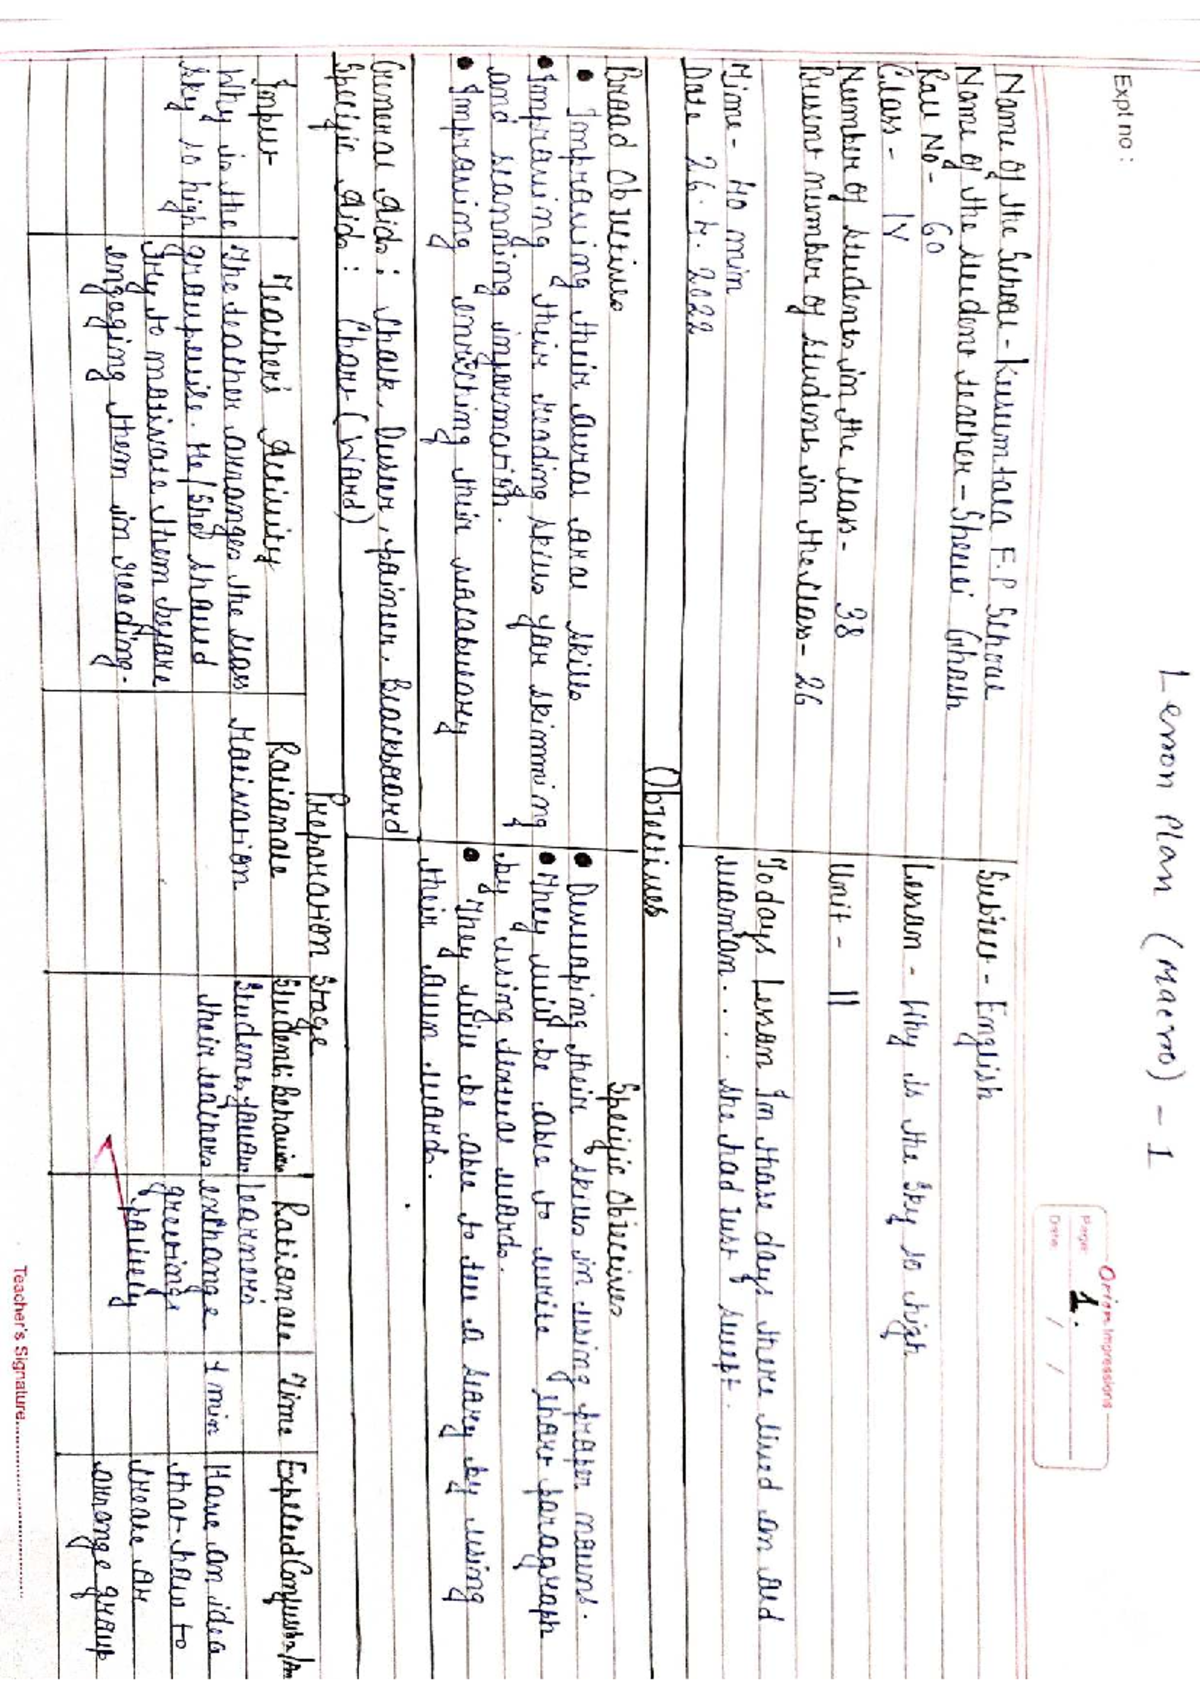 Lesson Plan (Macro) - 1
Orion Impressions
Page: 1.
Date: / /
Expt no :
Name of the School - Kusumtala F.P School
Name of the student teacher - Sheuli Ghosh
Roll No - 60
Class - IV
Number of students in the class - 38
Present number of students in the class - 26
Time - 40 min
Date 26.4.2022
Subject - English
Lesson - Why is the Sky so high
Unit - 11
Todays Lesson In those days there lived an old
woman . . . . she had just swept.
Objectives
Broad Objectives
• Improving their aural oral skills
• Improving their reading skills for skimming
and scanning information.
• Improving enriching their vocabulary
Specific Objectives
• Developing their skills in using proper nouns.
• They will be able to write short paragraph
by using textual words.
• They will be able to tell a story by using
their own words.
General Aids : Chalk, Duster, pointer, Blackboard
Specific Aids : Chart (Word)
Preparation Stage
Input
Teacher's Activity
Rationale
Students Behaviour
Rationale
Time
Expected
Why is the
sky so high
The teacher arranges the class
groupwise. He/She should
try to motivate them before
engaging them in reading.
Motivation
Students follow
their teachers
learners
exchange
greetings
politely
1 min
Have an idea
that how to
create an
arrange group
Teacher's Signature